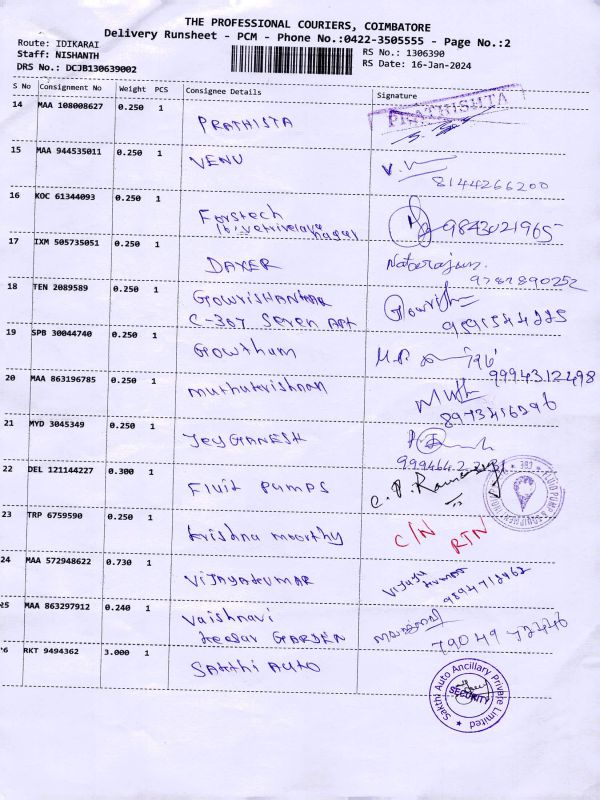 THE PROFESSIONAL COURIERS, COIMBATORE
Delivery Runsheet - PCM - Phone No.:0422-3505555 - Page No.:2
Route: IDIKARAI
Staff: NISHANTH
DRS No.: DCJB130639002
RS No.: 1306390
RS Date: 16-Jan-2024
S No Consignment No Weight PCS Consignee Details Signature
14 MAA 108008627 0.250 1 PRATHISTA PRATHISHTA
15 MAA 944535011 0.250 1 VENU
8144266200
16 KOC 61344093 0.250 1 Forstech 9843021965
16, vetrivelava nagar
17 IXM 505735051 0.250 1 DAXER Natarajan.
9787890252
18 TEN 2089589 0.250 1 GOWRISHANKAR Gowrish
C-307 Seven Art
19 SPB 30044740 0.250 1 Gowthum
9994312498
20 MAA 863196785 0.250 1 muthukrishnan Muth
8973416296
21 MYD 3045349 0.250 1 JEY GANESH
22 DEL 121144227 0.300 1 Fluit Pumps C.P. Ramasamy
23 TRP 6759590 0.250 1 krishna moorthy C/N RTN
24 MAA 572948622 0.730 1 VIJAYAKUMAR Vijaya kumar
9894712462
25 MAA 863297912 0.240 1 Vaishnavi
keesar GARDEN 79049 72446
26 RKT 9494362 3.000 1 SAKTHI AUTO
Sakthi Auto Ancillary Private Limited
SECURITY